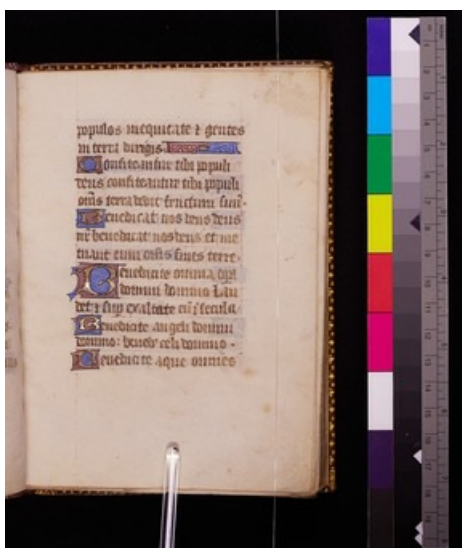 populos in equitate ⁊ gentes
in terra dirigis
Confiteantur tibi populi
deus confiteantur tibi populi
om̄s terra dedit fructum suū
Benedicat nos deus deus
nr̄ benedicat nos deus et me
tuant eum om̄s fines terre.
Benedicite omnia opa
domini domino lau
det ⁊ sup exaltate eū ī secula
Benedicite angeli domini
domino: bened celi domino.
Benedicite aque omnes